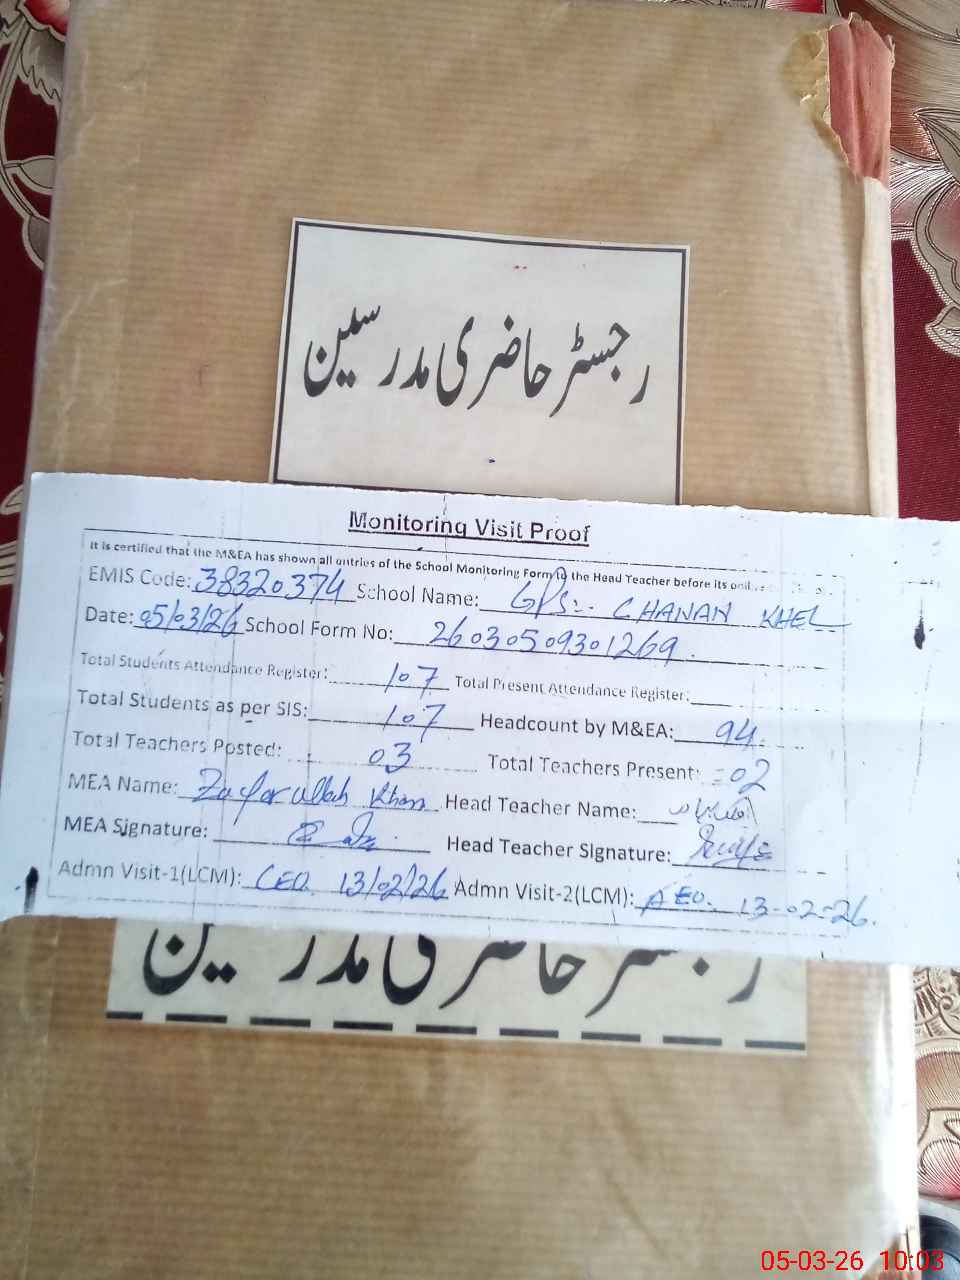 رجسٹر حاضری مدرسین
Monitoring Visit Proof
It is certified that the M&EA has shown all entries of the School Monitoring Form to the Head Teacher before its
EMIS Code: 38320374 School Name: GPS:- CHANAN KHEL
Date: 05/03/26 School Form No: 26030509301269.
Total Students Attendance Register: 107 Total Present Attendance Register:
Total Students as per SIS: 107 Headcount by M&EA: 94.
Total Teachers Posted: 03 Total Teachers Present: =02
MEA Name: Zafar ullah Khan Head Teacher Name:
MEA Signature: Head Teacher Signature:
Admn Visit-1(LCM): CEO. 13/02/26 Admn Visit-2(LCM): AEO. 13-02-26.
رجسٹر حاضری مدرسین
05-03-26 10:03